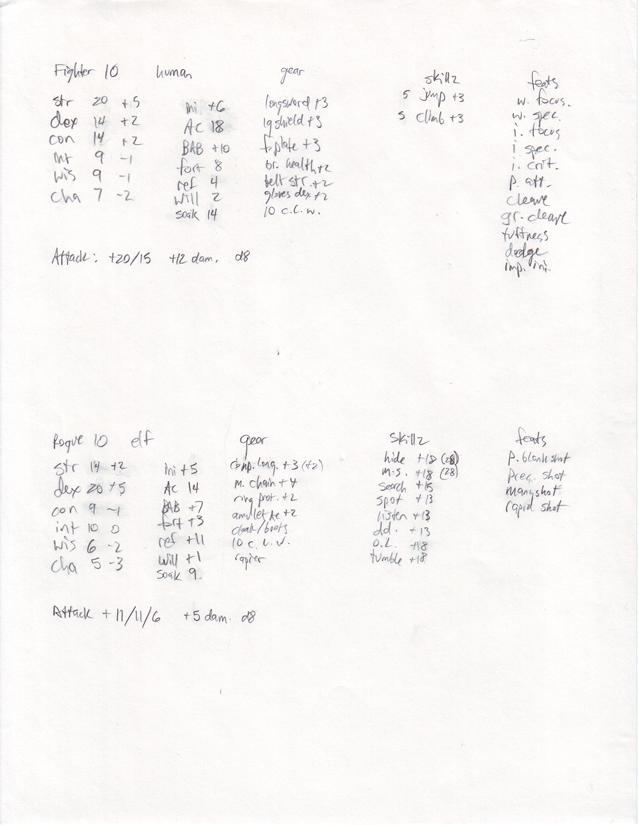 Fighter 10 human
str 20 +5
dex 14 +2
con 14 +2
int 9 -1
wis 9 -1
cha 7 -2
ini +6
AC 18
BAB +10
fort 8
ref 4
will 2
soak 14
gear
longsword +3
lg shield +3
f. plate +3
br. health +2
belt str. +2
gloves dex +2
10 c.l.w.
skillz
5 jump +3
5 climb +3
feats
w. focus.
w. spec.
i. focus
i. spec.
i. crit.
p. att.
cleave
gr. cleave
tuffness
dodge
imp. ini.
Attack: +20/15 +12 dam. d8
Rogue 10 elf
str 14 +2
dex 20 +5
con 9 -1
int 10 0
wis 6 -2
cha 5 -3
ini +5
AC 14
BAB +7
fort +3
ref +11
will +1
soak 9.
gear
comp. long. +3 (+2)
m. chain +4
ring prot. +2
amulet Ac +2
cloak/boots
10 c.l.w.
rapier
skillz
hide +18 (28)
m.s. +18 (28)
search +15
spot +13
listen +13
dd. +13
o.L. +18
tumble +18
feats
p. blank shot
prec. shot
manyshot
rapid shot
Attack + 11/11/6 +5 dam. d8